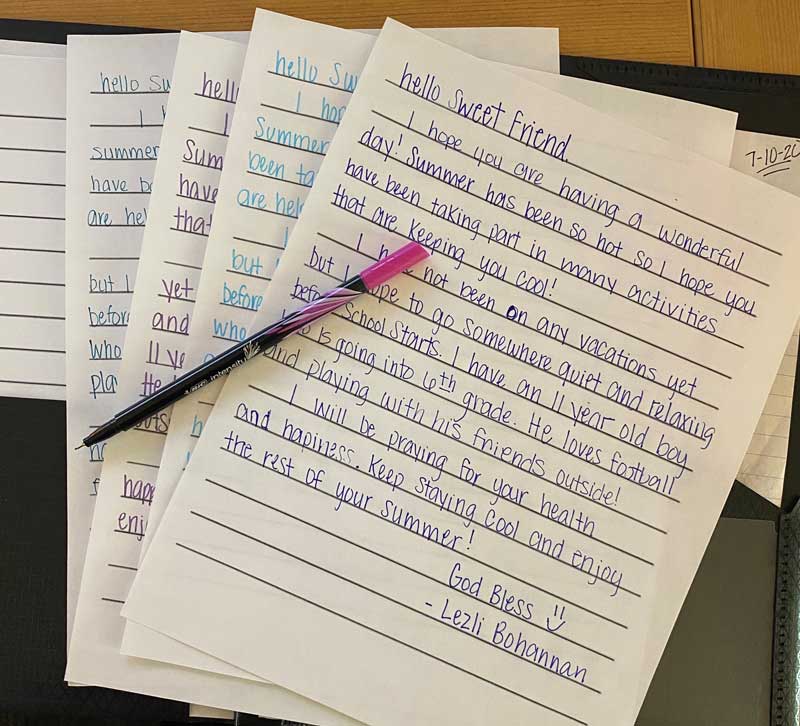 hello Sweet Friend,
I hope you are having a wonderful
day! Summer has been so hot so I hope you
have been taking part in many activities
that are keeping you cool!
I have not been on any vacations yet
but I hope to go somewhere quiet and relaxing
before School starts. I have an 11 year old boy
is going into 6th grade. He loves football
and playing with his friends outside!
I will be praying for your health
and hapiness. Keep staying cool and enjoy
the rest of your summer!
God Bless
- Lezli Bohannan
hello Sw
I hop
Summer
been ta
are help
but
before
who
hello
I
Sum
have
that
yet
and
11 ye
He
outs
hap
enj
hello Su
I h
summer
have be
are hel
but I
before
who
pla
intensity
7-10-20